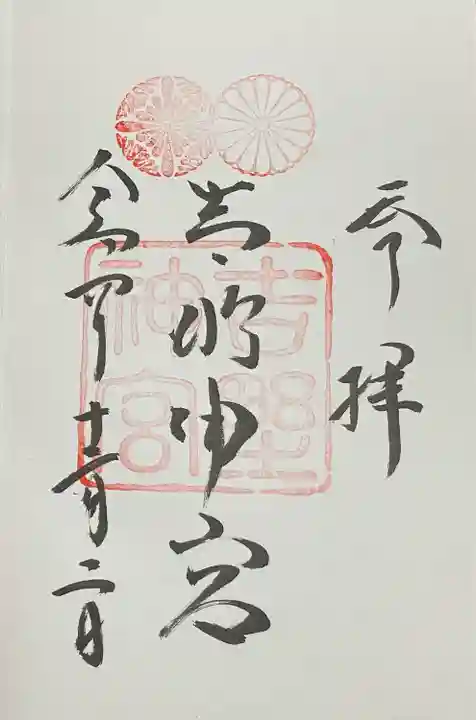 参拝
吉野神宮
吉野神宮
令和四年十二月二日